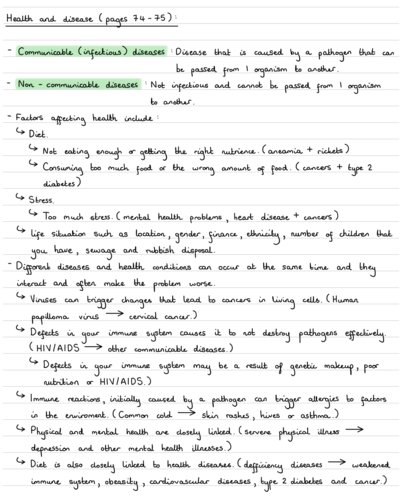 Health and disease (pages 74-75):
- Communicable (infectious) diseases : Disease that is caused by a pathogen that can
be passed from 1 organism to another.
- Non-communicable diseases : Not infectious and cannot be passed from 1 organism
to another.
- Factors affecting health include:
↳ Diet.
↳ Not eating enough or getting the right nutrience. (anaemia + rickets)
↳ Consuming too much food or the wrong amount of food. (cancers + type 2
diabetes)
↳ Stress.
↳ Too much stress. (mental health problems, heart disease + cancers)
↳ life situation such as location, gender, finance, ethnicity, number of children that
you have, sewage and rubbish disposal.
- Different diseases and health conditions can occur at the same time and they
interact and often make the problem worse.
↳ Viruses can trigger changes that lead to cancers in living cells. (Human
papilloma virus → cervical cancer.)
↳ Defects in your immune system causes it to not destroy pathogens effectively.
(HIV/AIDS → other communicable diseases.)
↳ Defects in your immune system may be a result of genetic makeup, poor
nutrition or HIV/AIDS.)
↳ Immune reactions, initially caused by a pathogen can trigger allergies to factors
in the enviroment. (Common cold → skin rashes, hives or asthma.)
↳ Physical and mental health are closely linked. (servere physical illness →
depression and other mental health illnesses.)
↳ Diet is also closely linked to health diseases. (defficiency diseases → weakened
immune system, obeasity, cardiovascular diseases, type 2 diabetes and cancer.)